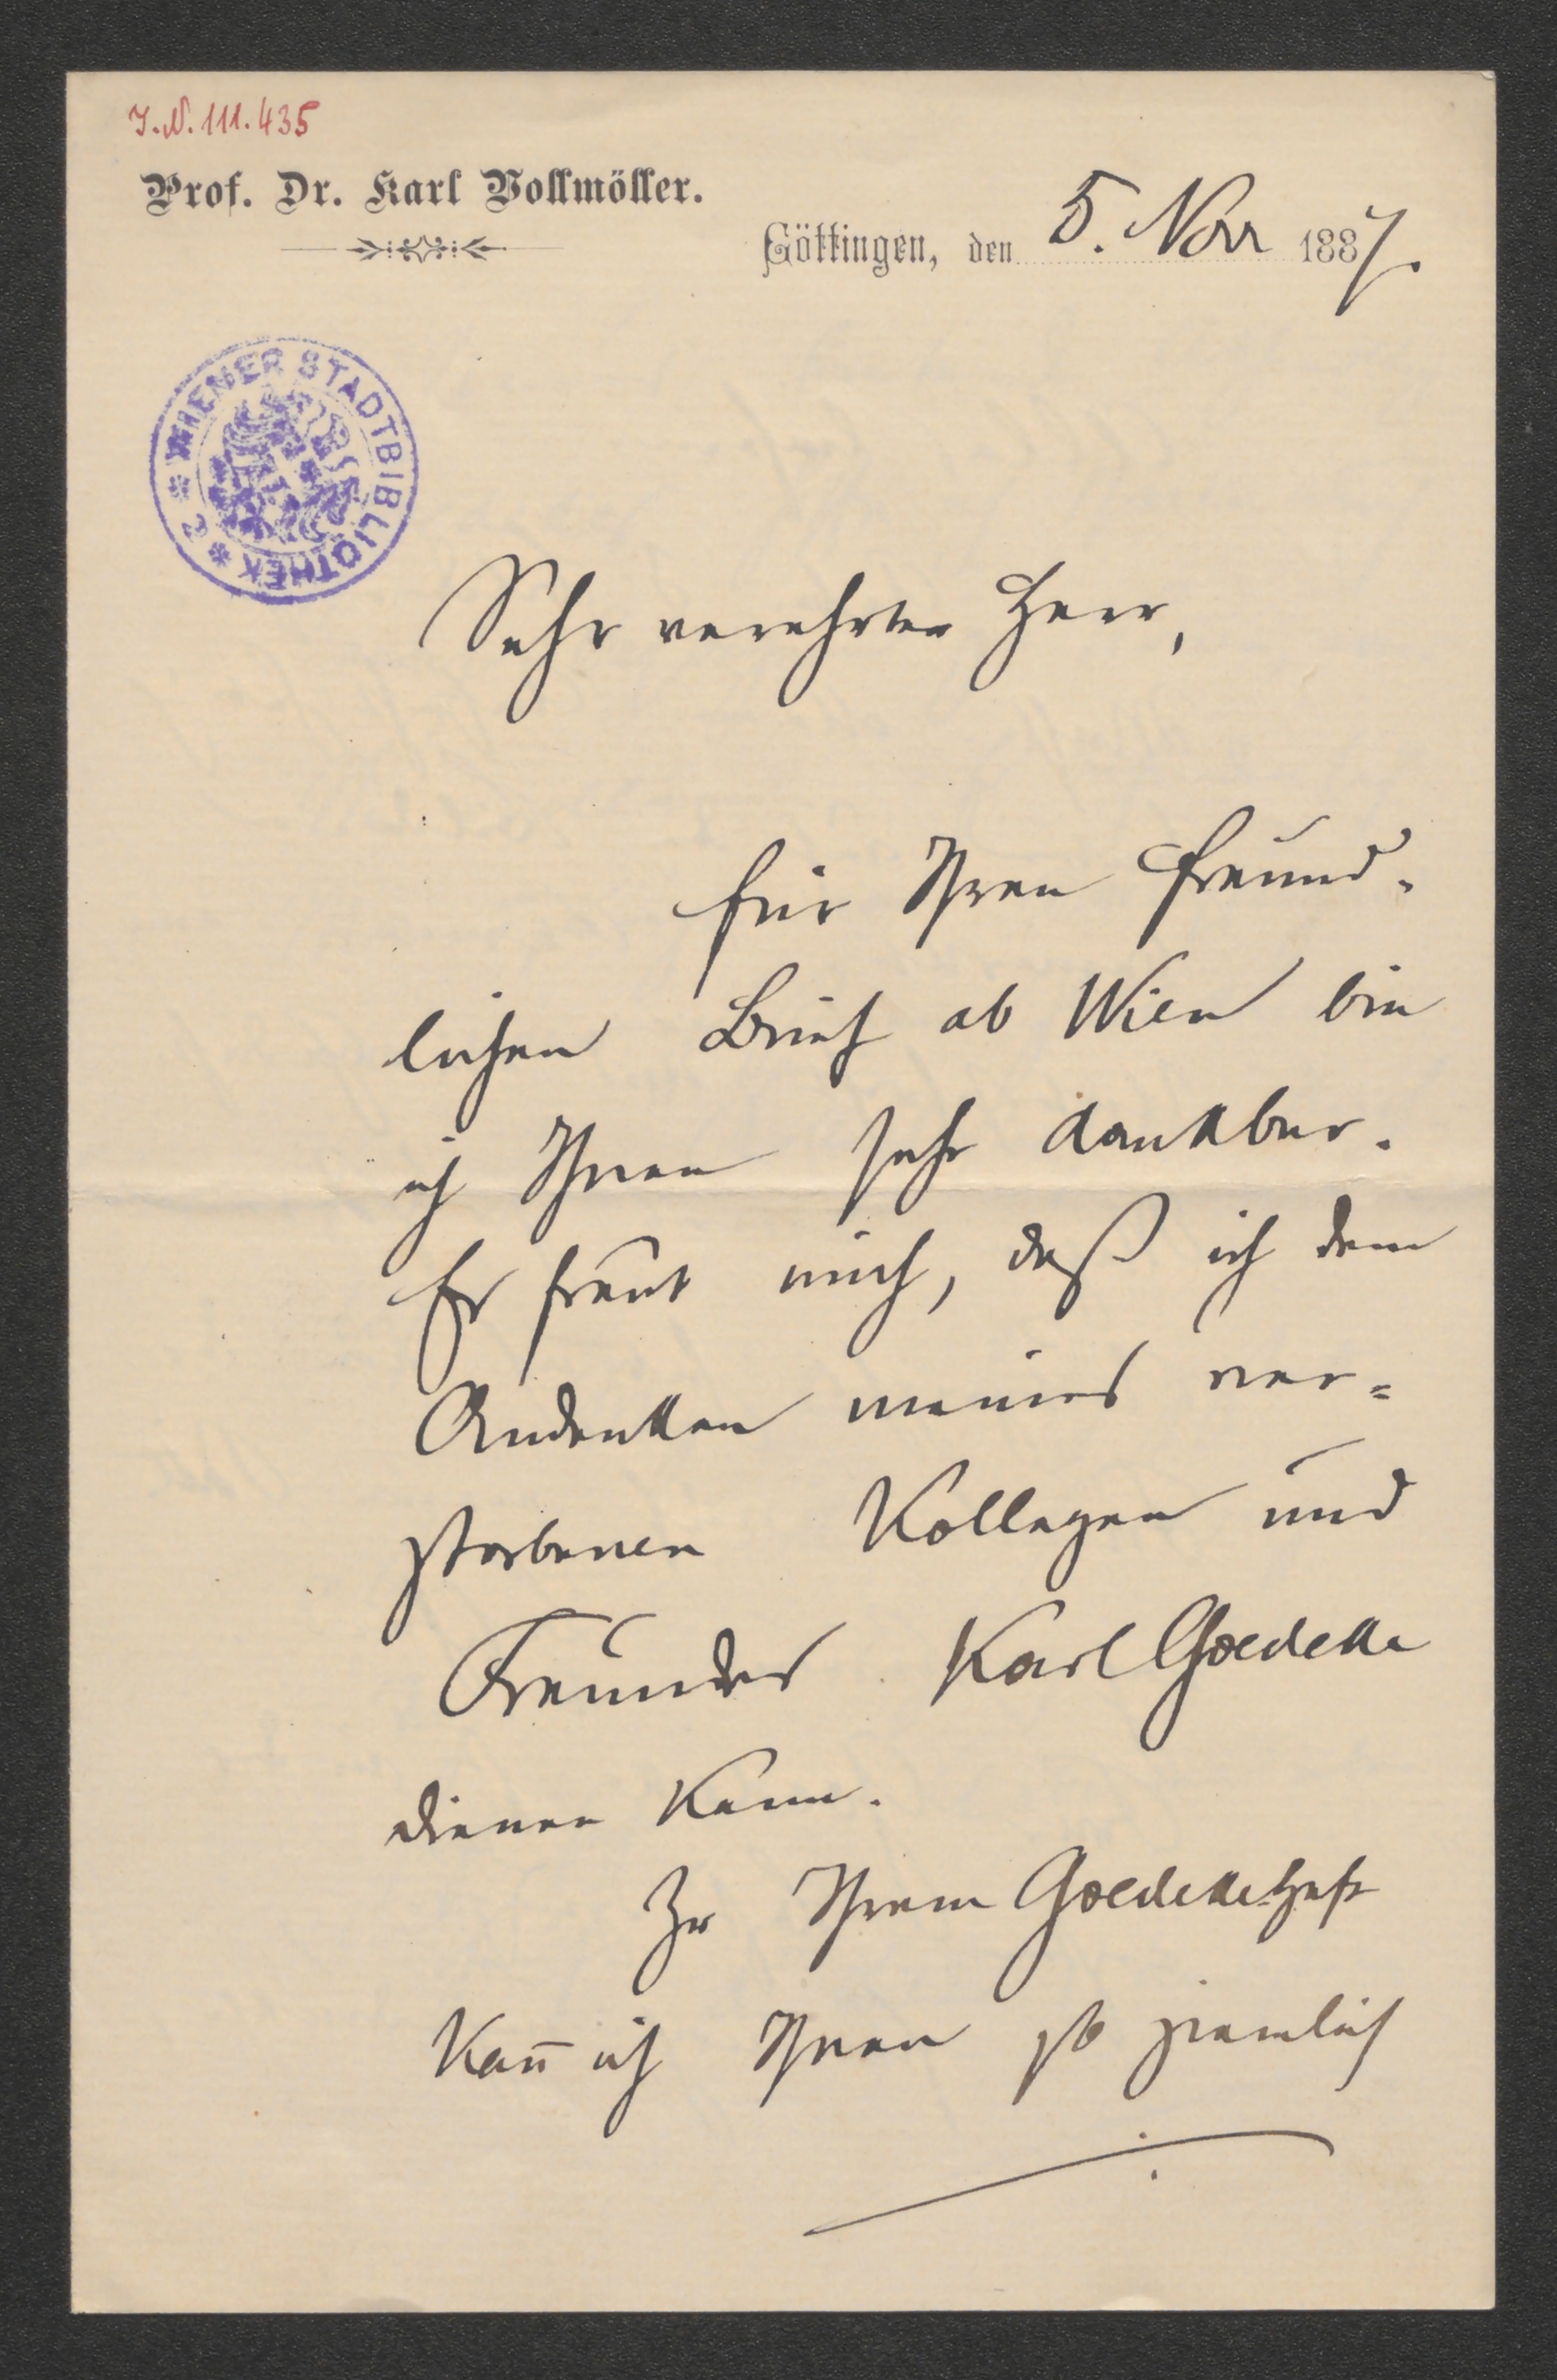 I.N. 111.435
Prof. Dr. Karl Vollmöller.
Göttingen, den 5. Nov 1887.
WIENER STADTBIBLIOTHEK * 2 *
Sehr verehrter Herr,
für Ihren freund-
lichen Brief ab Wien bin
ich Ihnen sehr dankbar.
Es freut mich, daß ich dem
Andenken meines ver=
storbenen Kollegen und
Freundes Karl Goedeke
dienen kann.
Zu Ihrem Goedeke-Heft
kan̄ ich Ihnen so ziemlich